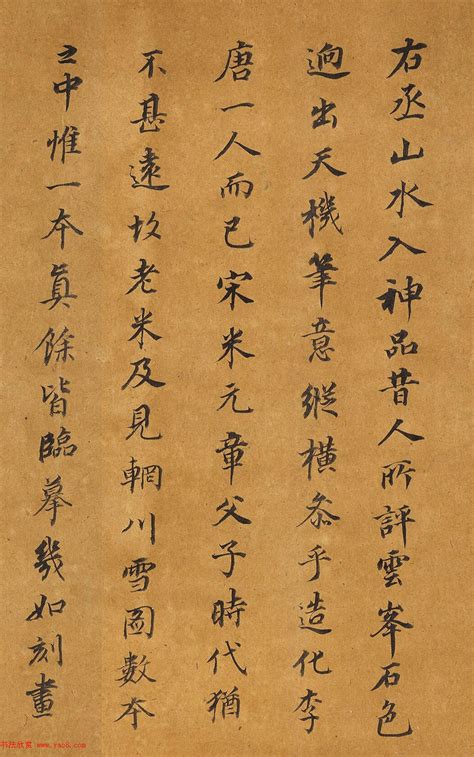 右丞山水入神品昔人所評雲峯石色
逈出天機筆意縱橫叅乎造化李
唐一人而已宋米元章父子時代猶
不甚遠故老米及見輞川雪圖數本
之中惟一本真餘皆臨摹幾如刻畫
书法欣赏 www.yac8.com